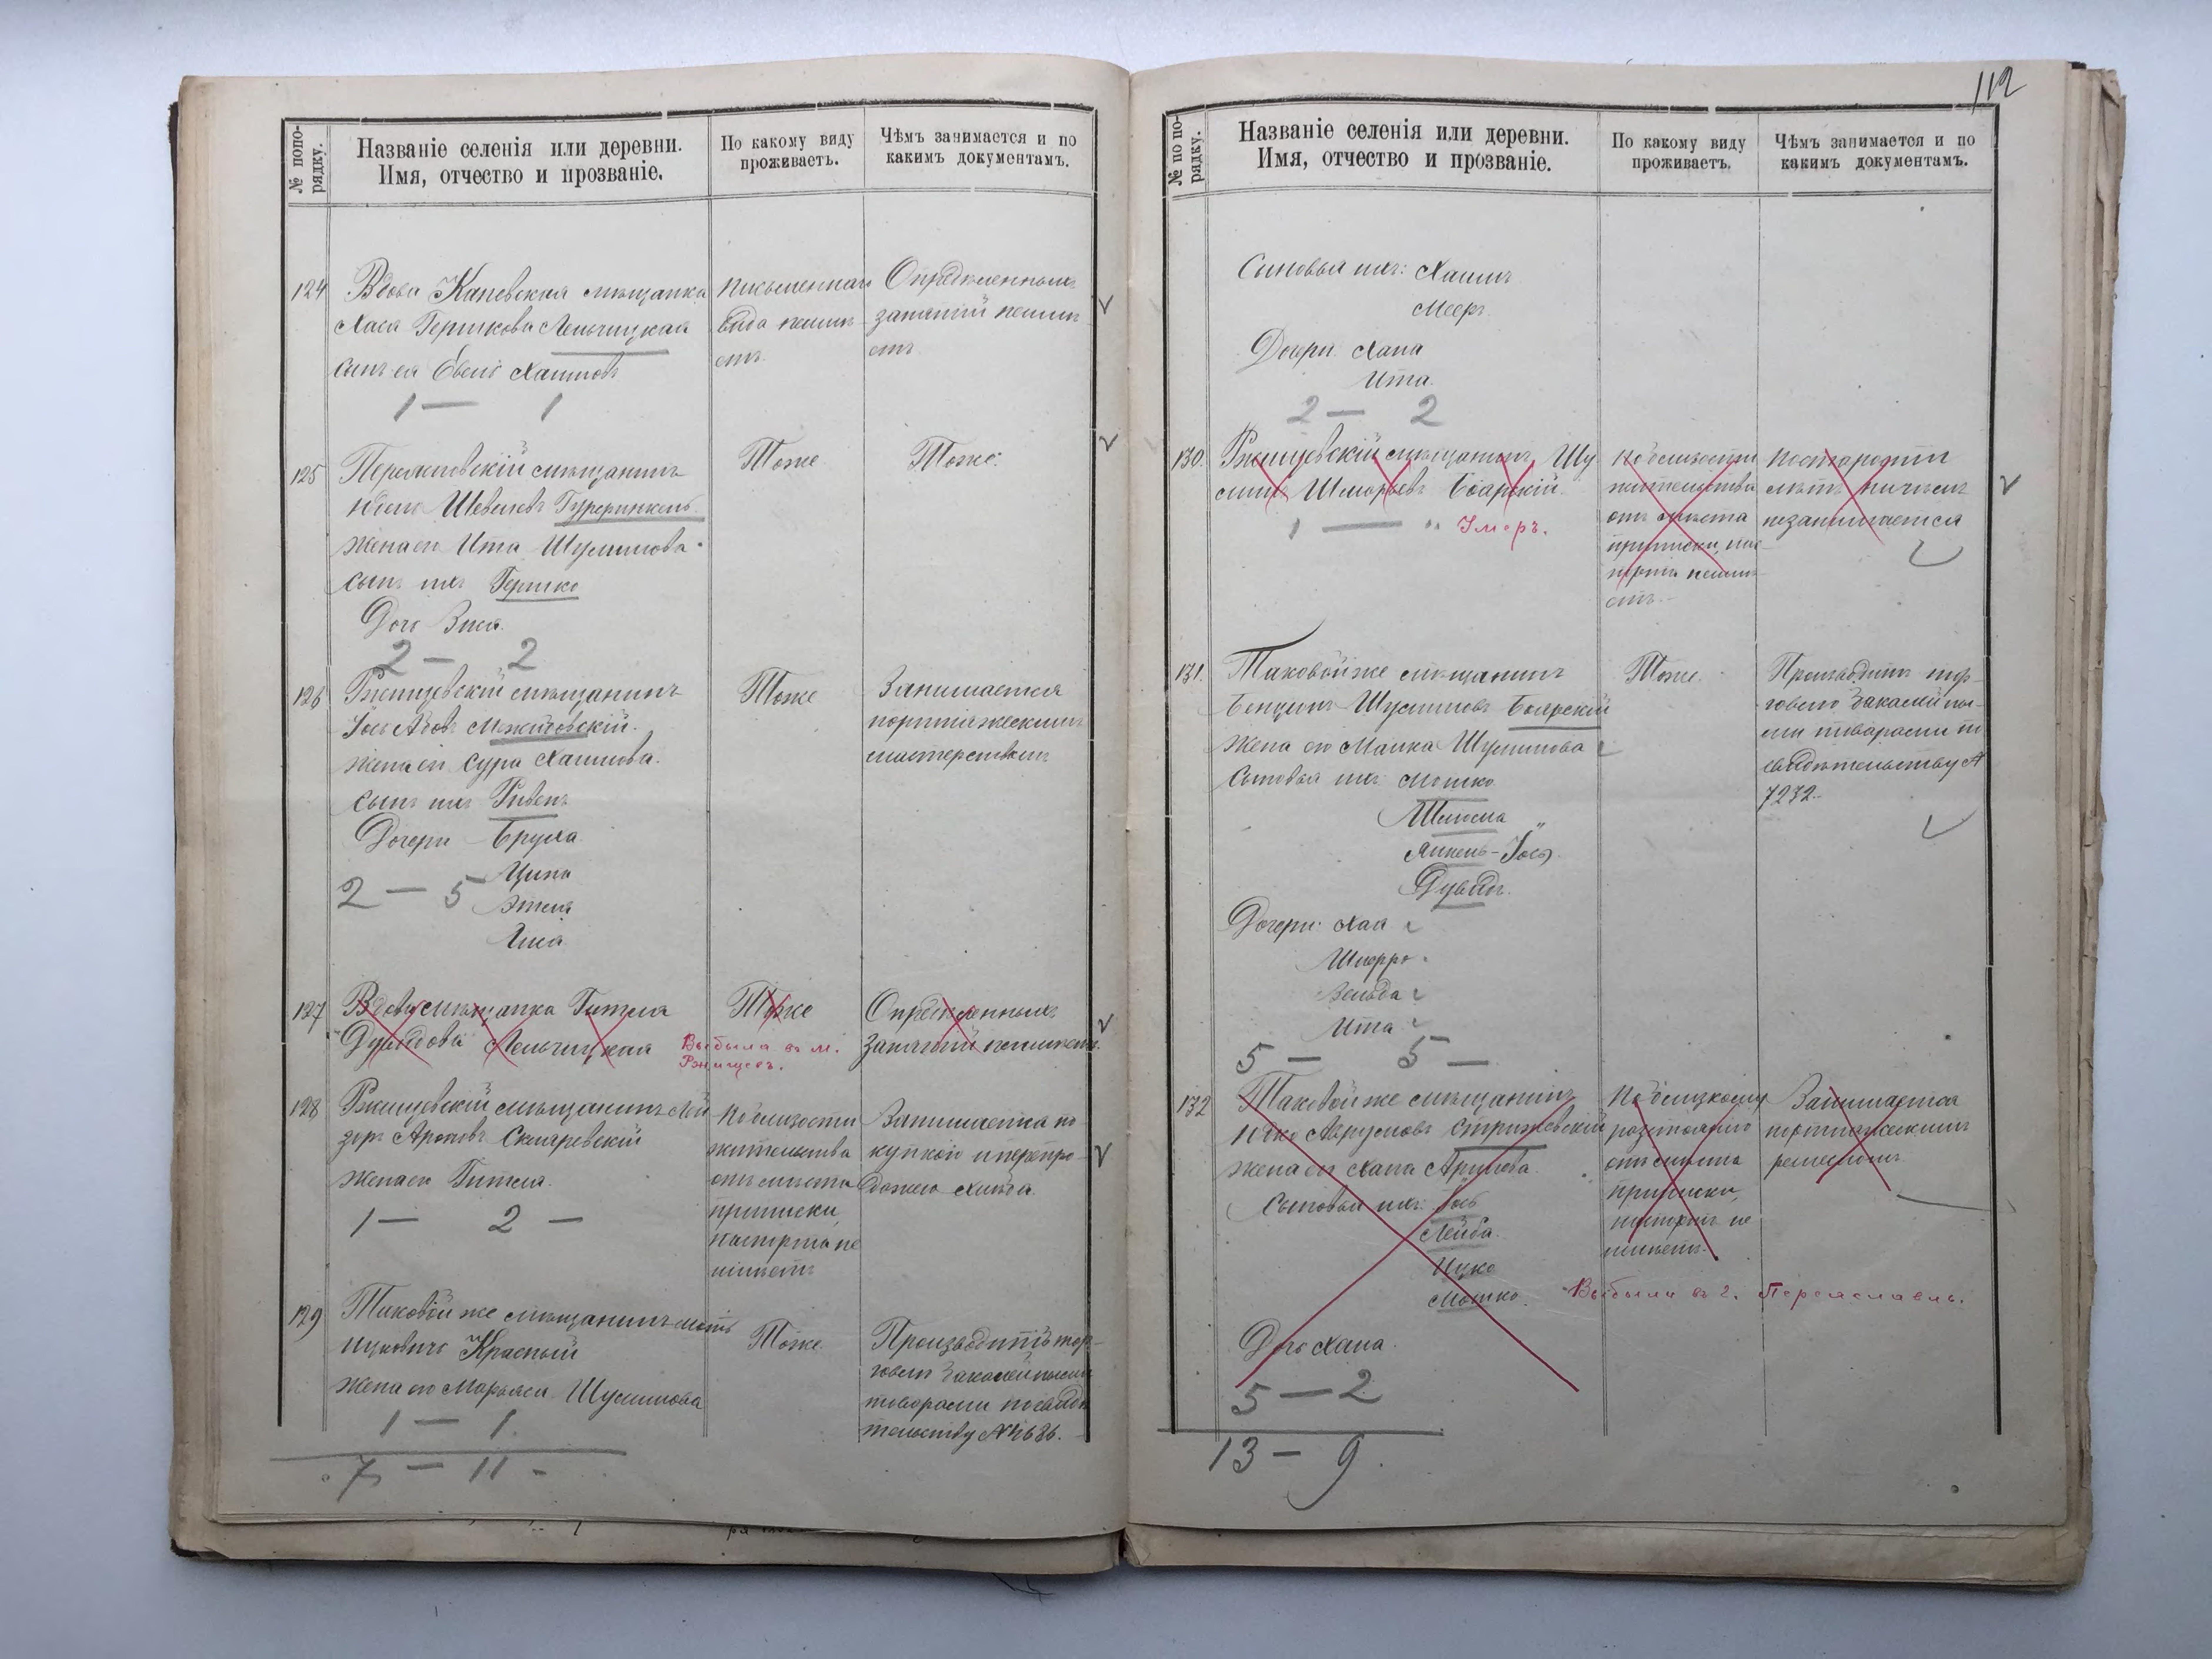 № попо-
рядку.
Названіе селенія или деревни.
Имя, отчество и прозваніе.
По какому виду
проживаетъ.
Чѣмъ занимается и по
какимъ документамъ.
124
Вдова Каневская мѣщанка
Хася Гершкова Лельчицкая
сынъ ея Евель Хаимовъ
1 — 1
письменнаго
вида неимѣ-
етъ
Опредѣленныхъ
занятій неимѣ-
етъ
125
мѣщанинъ
жена его Ита Шулимова
сынъ ихъ Гершко
Дочь Зися
2 — 2
Тоже
Тоже.
126
Ржищевскій мѣщанинъ
жена его Сура Хаимова.
сынъ ихъ Рувенъ
Дочери Бруха
Ципа
Этля
2 — 5
Тоже
Занимается
портняжескимъ
мастерствомъ
127
Вдова мѣщанка Гитля
Дувидова Лельчицкая
Тоже
Выбыла въ м.
Ржищевъ.
Опредѣленныхъ
занятій неимѣетъ.
128
Ржищевскій мѣщанинъ Лей
зоръ Ароновъ Скляревскій
жена его Гитля
1 — 2 —
По близости
жительства
отъ мѣста
приписки,
паспорта не
имѣетъ
Занимается по
купкою и перепро-
дажею хлѣба.
129
Таковой же мѣщанинъ
Ицковичъ Красный
жена его Марьяся Шулимова
1 — 1.
7 — 11 -
Тоже
Производитъ тор-
говлю бакалейными
товарами по свидѣ
тельству №
112
№ по по-
рядку.
Названіе селенія или деревни.
Имя, отчество и прозваніе.
По какому виду
проживаетъ.
Чѣмъ занимается и по
какимъ документамъ.
Сыновья ихъ: Хаимъ
Мееръ.
Дочери: Хана
Ита.
2 — 2
130.
Ржищевскій мѣщанинъ Шу
лимъ Шмарьевъ Боярскій.
1 — " Умеръ.
По близости
жительства
отъ мѣста
приписки, пас-
порта неимѣ-
етъ.
По старости
лѣтъ ничѣмъ
незанимается
131.
Таковой же мѣщанинъ
Бенционъ Шулимовъ Боярскій
жена его Малка Шулимова
Сыновья ихъ Мошко
Шлема
Янкель-Іось
Дувидъ.
Дочери: Хая
Шифра
Зельда
Ита
5 — 5 —
Тоже.
Производитъ тор-
говлю бакалейны-
ми товарами по
свидѣтельству №
7232.
132
Таковой же мѣщанинъ
Ицко Аврумовъ Стрижевскій
жена его Хана
Сыновья ихъ: Іось
Лейба.
Ицко
Мошко.
Дочь Хана.
5 — 2
13 — 9.
По близкому
разстоянію
отъ мѣста
приписки,
паспорта не
имѣетъ.
Занимается
портняжескимъ
ремесломъ.
Выбыли въ г. Переяславль.